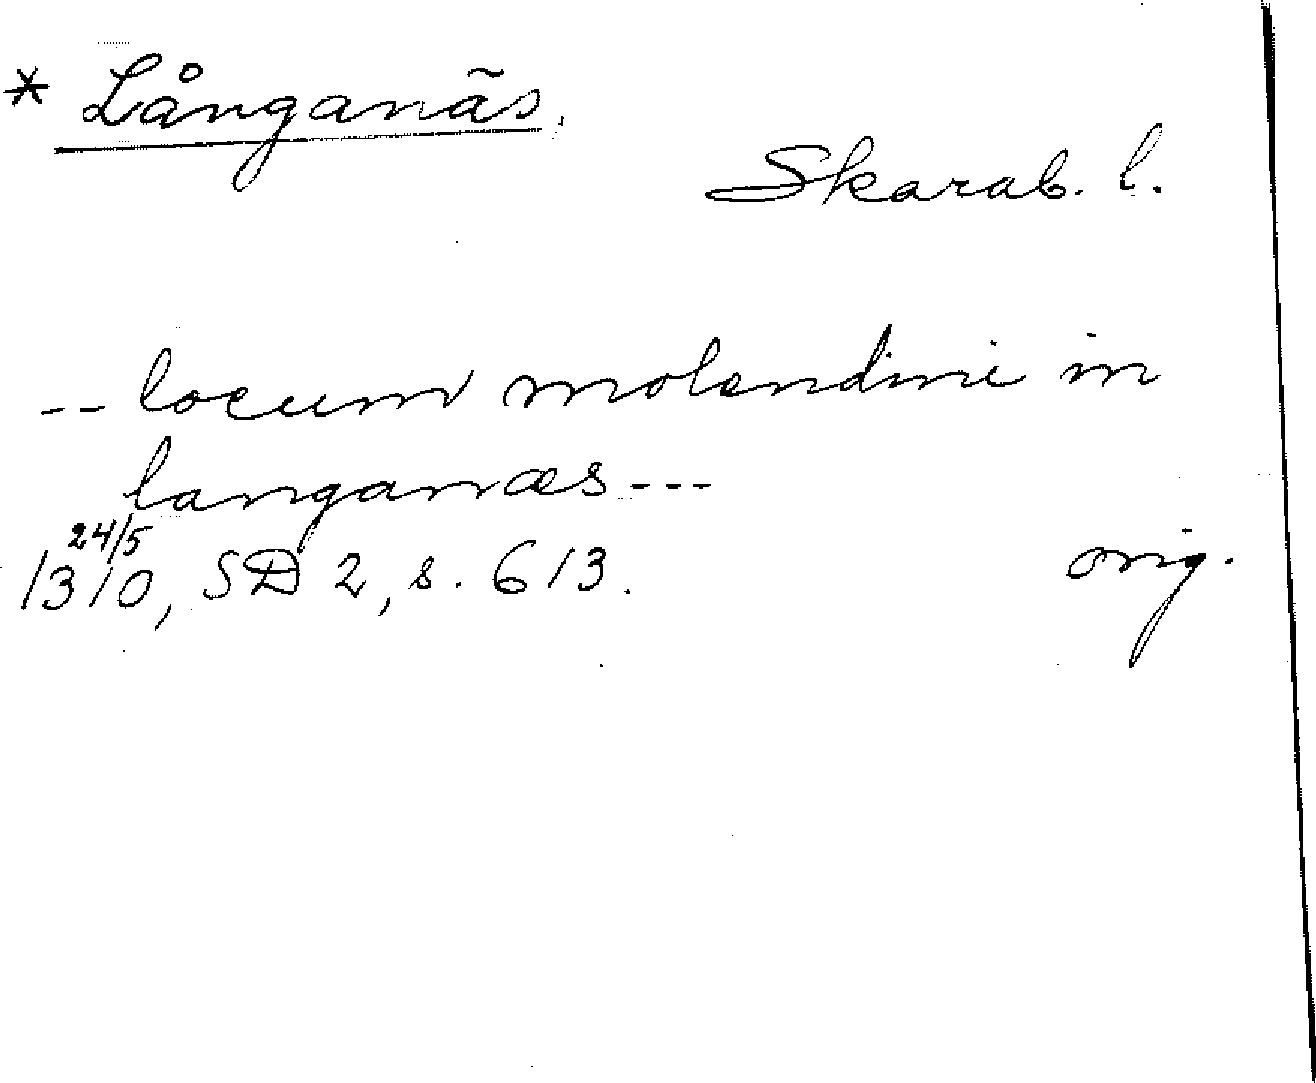 * Långanäs.
Skarab. l.
-- locum molendini in
langanæs ---
24/5
1310, SD 2, s. 613. orig.